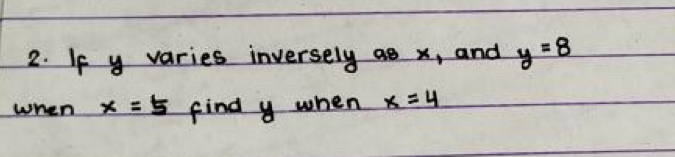 2. If y varies inversely as x, and y = 8
when x = 5 find y when x = 4